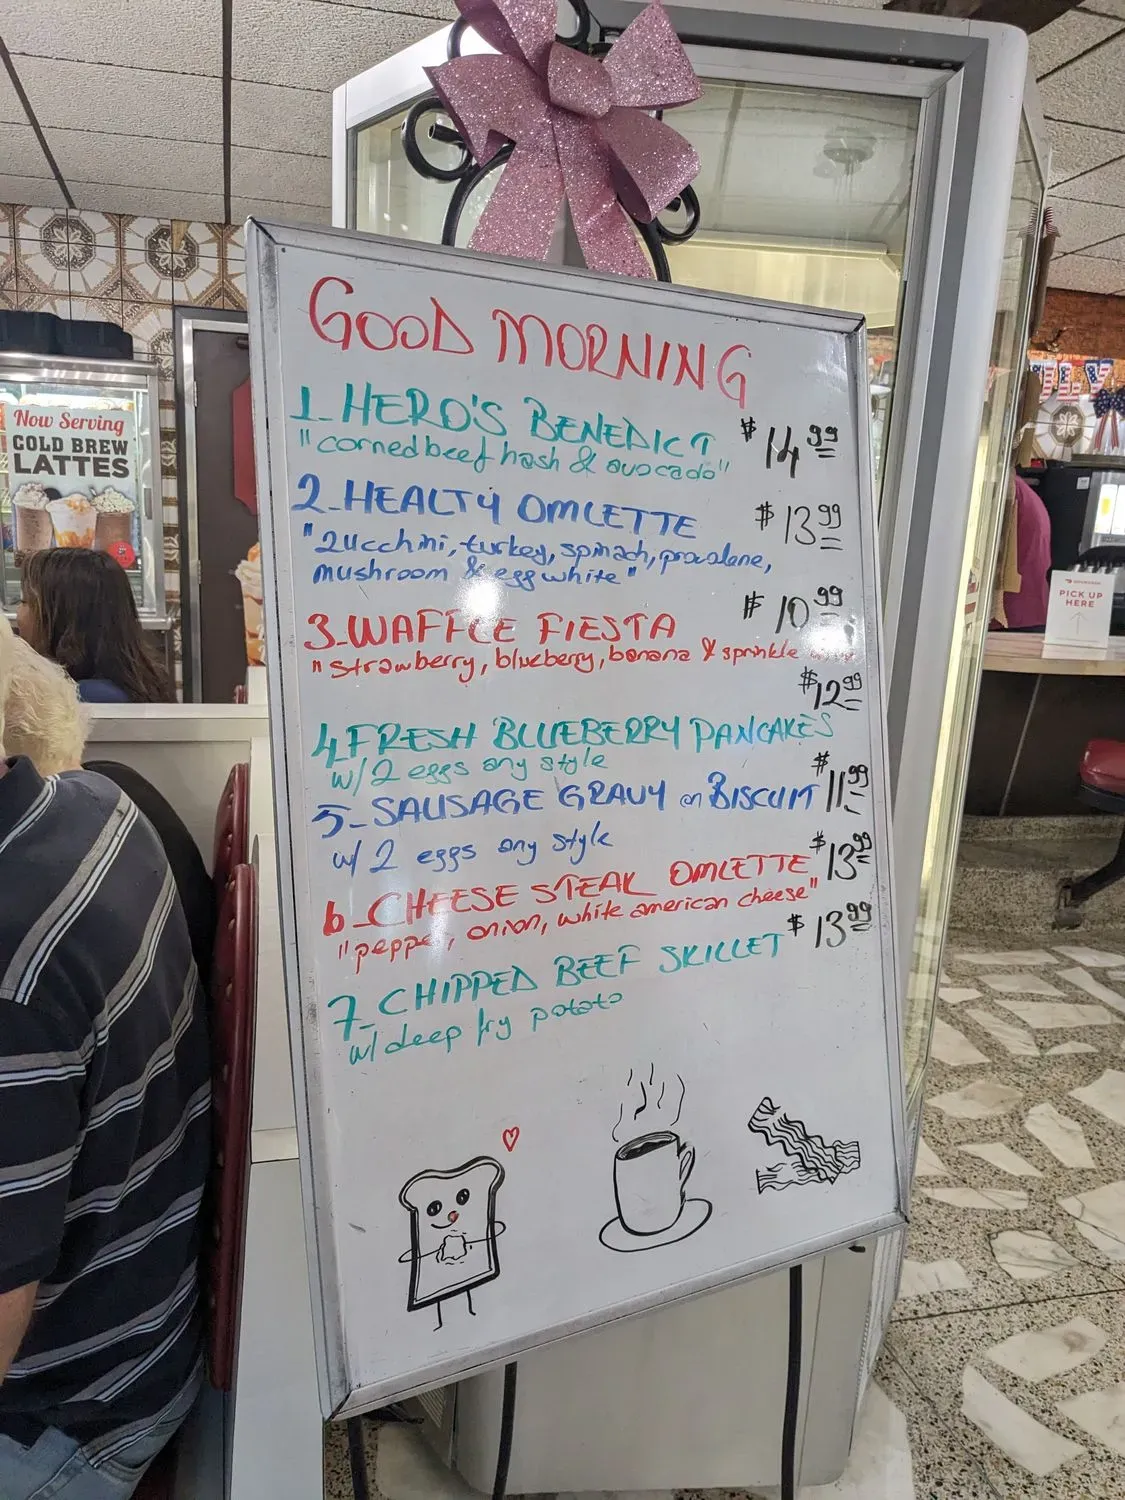 GOOD MORNING
1_HERO'S BENEDICT $14.99
"corned beef hash & avocado"
2_HEALTY OMLETTE $13.99
"zucchini, turkey, spinach, provolene,
mushroom & egg white"
3_WAFFLE FIESTA $10.99
"strawberry, blueberry, banana & sprinkle
$12.99
4_FRESH BLUEBERRY PANCAKES
w/2 eggs any style
5_SAUSAGE GRAVY on BISCUIT $11.99
w/ 2 eggs any style
6_CHEESE STEAK OMLETTE $13.99
"pepper, onion, white american cheese"
7_CHIPPED BEEF SKILLET $13.99
w/ deep fry potato
Now Serving
COLD BREW
LATTES
DOORDASH
PICK UP
HERE